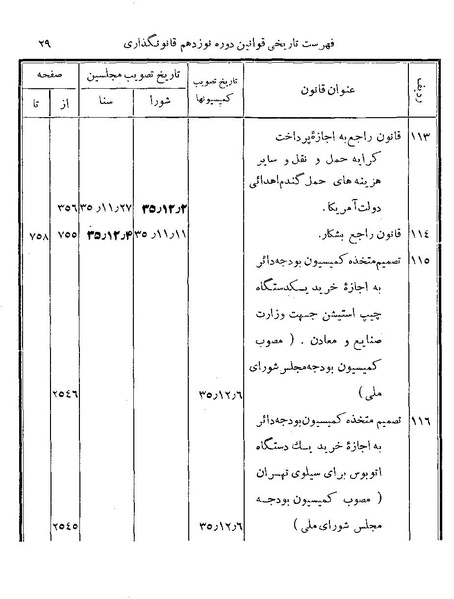 فهرست تاریخی قوانین دوره نوزدهم قانونگذاری ۲۹
ردیف عنوان قانون تاریخ تصویب کمیسیونها تاریخ تصویب مجلسین صفحه
شورا سنا از تا
۱۱۳ قانون راجع به اجازهٔ پرداخت
کرایه حمل و نقل و سایر
هزینه های حمل گندم اهدائی
دولت آمریکا. ۳۵٫۱۲٫۲ ۳۵٫۱۱٫۲۷ ۳۵۶
۱۱۴ قانون راجع بشکار. ۳۵٫۱۱٫۱۱ ۳۵٫۱۲٫۴ ۷۵۵ ۷۵۸
۱۱۵ تصمیم متخذه کمیسیون بودجه دائر
به اجازهٔ خرید یکدستگاه
چیپ استیشن جهت وزارت
صنایع و معادن . ( مصوب
کمیسیون بودجه مجلس شورای
ملی) ۳۵٫۱۲٫۶ ۲۵۴۶
۱۱۶ تصمیم متخذه کمیسیون بودجه دائر
به اجازهٔ خرید یك دستگاه
اتوبوس برای سیلوی تهران
( مصوب کمیسیون بودجه
مجلس شورای ملی) ۳۵٫۱۲٫۶ ۲۵۴۵